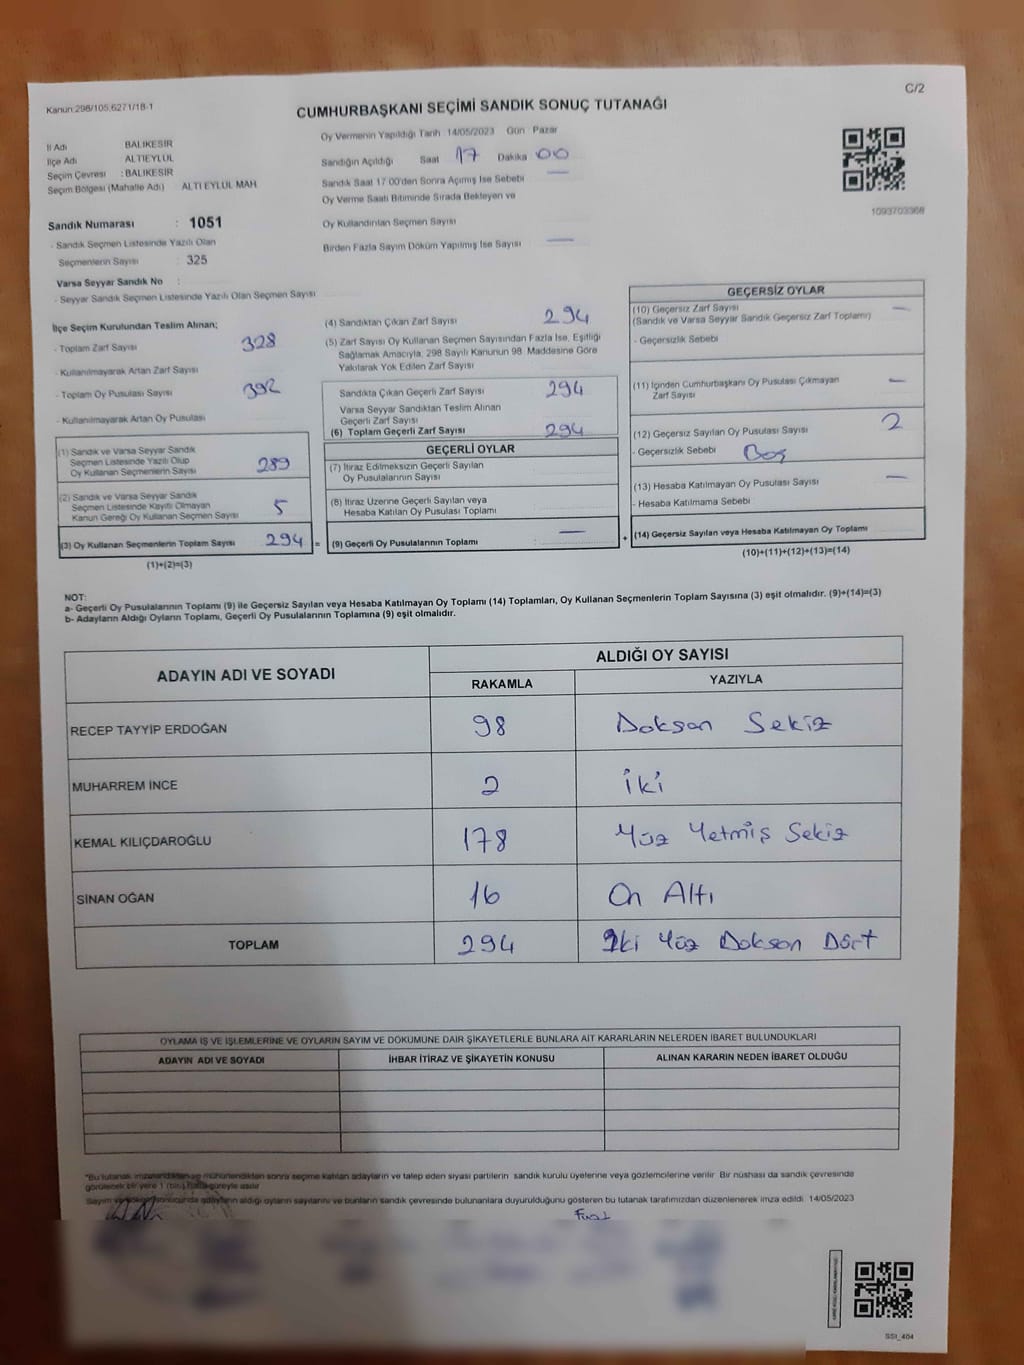 Kanun:298/105;6271/18-1
C/2
CUMHURBAŞKANI SEÇİMİ SANDIK SONUÇ TUTANAĞI
İl Adı BALIKESİR
İlçe Adı ALTIEYLÜL
Seçim Çevresi : BALIKESİR
Seçim Bölgesi (Mahalle Adı) ALTI EYLÜL MAH
Sandık Numarası : 1051
- Sandık Seçmen Listesinde Yazılı Olan
Seçmenlerin Sayısı : 325
Varsa Seyyar Sandık No :
- Seyyar Sandık Seçmen Listesinde Yazılı Olan Seçmen Sayısı
Oy Vermenin Yapıldığı Tarih 14/05/2023 Gün Pazar
Sandığın Açıldığı Saat 17 Dakika 00
Sandık Saat 17:00'den Sonra Açımış İse Sebebi —
Oy Verme Saati Bitiminde Sırada Bekleyen ve
Oy Kullandırılan Seçmen Sayısı
Birden Fazla Sayım Döküm Yapılmış İse Sayısı —
1093703368
İlçe Seçim Kurulundan Teslim Alınan;
- Toplam Zarf Sayısı 328
- Kullanılmayarak Artan Zarf Sayısı
- Toplam Oy Pusulası Sayısı 392
- Kullanılmayarak Artan Oy Pusulası
(1) Sandık ve Varsa Seyyar Sandık
Seçmen Listesinde Yazılı Olup
Oy Kullanan Seçmenlerin Sayısı 289
(2) Sandık ve Varsa Seyyar Sandık
Seçmen Listesinde Kayıtlı Olmayan
Kanun Gereği Oy Kullanan Seçmen Sayısı 5
(3) Oy Kullanan Seçmenlerin Toplam Sayısı 294 =
(1)+(2)=(3)
(4) Sandıktan Çıkan Zarf Sayısı 294
(5) Zarf Sayısı Oy Kullanan Seçmen Sayısından Fazla İse, Eşitliği
Sağlamak Amacıyla, 298 Sayılı Kanunun 98. Maddesine Göre
Yakılarak Yok Edilen Zarf Sayısı
Sandıkta Çıkan Geçerli Zarf Sayısı 294
Varsa Seyyar Sandıktan Teslim Alınan
Geçerli Zarf Sayısı
(6) Toplam Geçerli Zarf Sayısı 294
GEÇERLİ OYLAR
(7) İtiraz Edilmeksizin Geçerli Sayılan
Oy Pusulalarının Sayısı
(8) İtiraz Üzerine Geçerli Sayılan veya
Hesaba Katılan Oy Pusulası Toplamı
(9) Geçerli Oy Pusulalarının Toplamı : — +
GEÇERSİZ OYLAR
(10) Geçersiz Zarf Sayısı —
(Sandık ve Varsa Seyyar Sandık Geçersiz Zarf Toplamı)
- Geçersizlik Sebebi
(11) İçinden Cumhurbaşkanı Oy Pusulası Çıkmayan —
Zarf Sayısı
(12) Geçersiz Sayılan Oy Pusulası Sayısı 2
- Geçersizlik Sebebi Boş
(13) Hesaba Katılmayan Oy Pusulası Sayısı —
- Hesaba Katılmama Sebebi
(14) Geçersiz Sayılan veya Hesaba Katılmayan Oy Toplamı
(10)+(11)+(12)+(13)=(14)
NOT:
a- Geçerli Oy Pusulalarının Toplamı (9) ile Geçersiz Sayılan veya Hesaba Katılmayan Oy Toplamı (14) Toplamları, Oy Kullanan Seçmenlerin Toplam Sayısına (3) eşit olmalıdır. (9)+(14)=(3)
b- Adayların Aldığı Oyların Toplamı, Geçerli Oy Pusulalarının Toplamına (9) eşit olmalıdır.
ADAYIN ADI VE SOYADI ALDIĞI OY SAYISI
RAKAMLA YAZIYLA
RECEP TAYYİP ERDOĞAN 98 Doksan Sekiz
MUHARREM İNCE 2 İki
KEMAL KILIÇDAROĞLU 178 Yüz Yetmiş Sekiz
SİNAN OĞAN 16 On Altı
TOPLAM 294 İki Yüz Doksan Dört
OYLAMA İŞ VE İŞLEMLERİNE VE OYLARIN SAYIM VE DÖKÜMÜNE DAİR ŞİKAYETLERLE BUNLARA AİT KARARLARIN NELERDEN İBARET BULUNDUKLARI
ADAYIN ADI VE SOYADI İHBAR İTİRAZ VE ŞİKAYETİN KONUSU ALINAN KARARIN NEDEN İBARET OLDUĞU
*Bu tutanak imzalandıktan ve mühürlendikten sonra seçime katılan adayların ve talep eden siyasi partilerin sandık kurulu üyelerine veya gözlemcilerine verilir. Bir nüshası da sandık çevresinde
görülebilir bir yere 1 (bir) hafta süreyle asılır
Sayım ve döküm sonucunda adayların aldığı oyların sayılarını ve bunların sandık çevresinde bulunanlara duyurulduğunu gösteren bu tutanak tarafımızdan düzenlenerek imza edildi. 14/05/2023
SSI_404